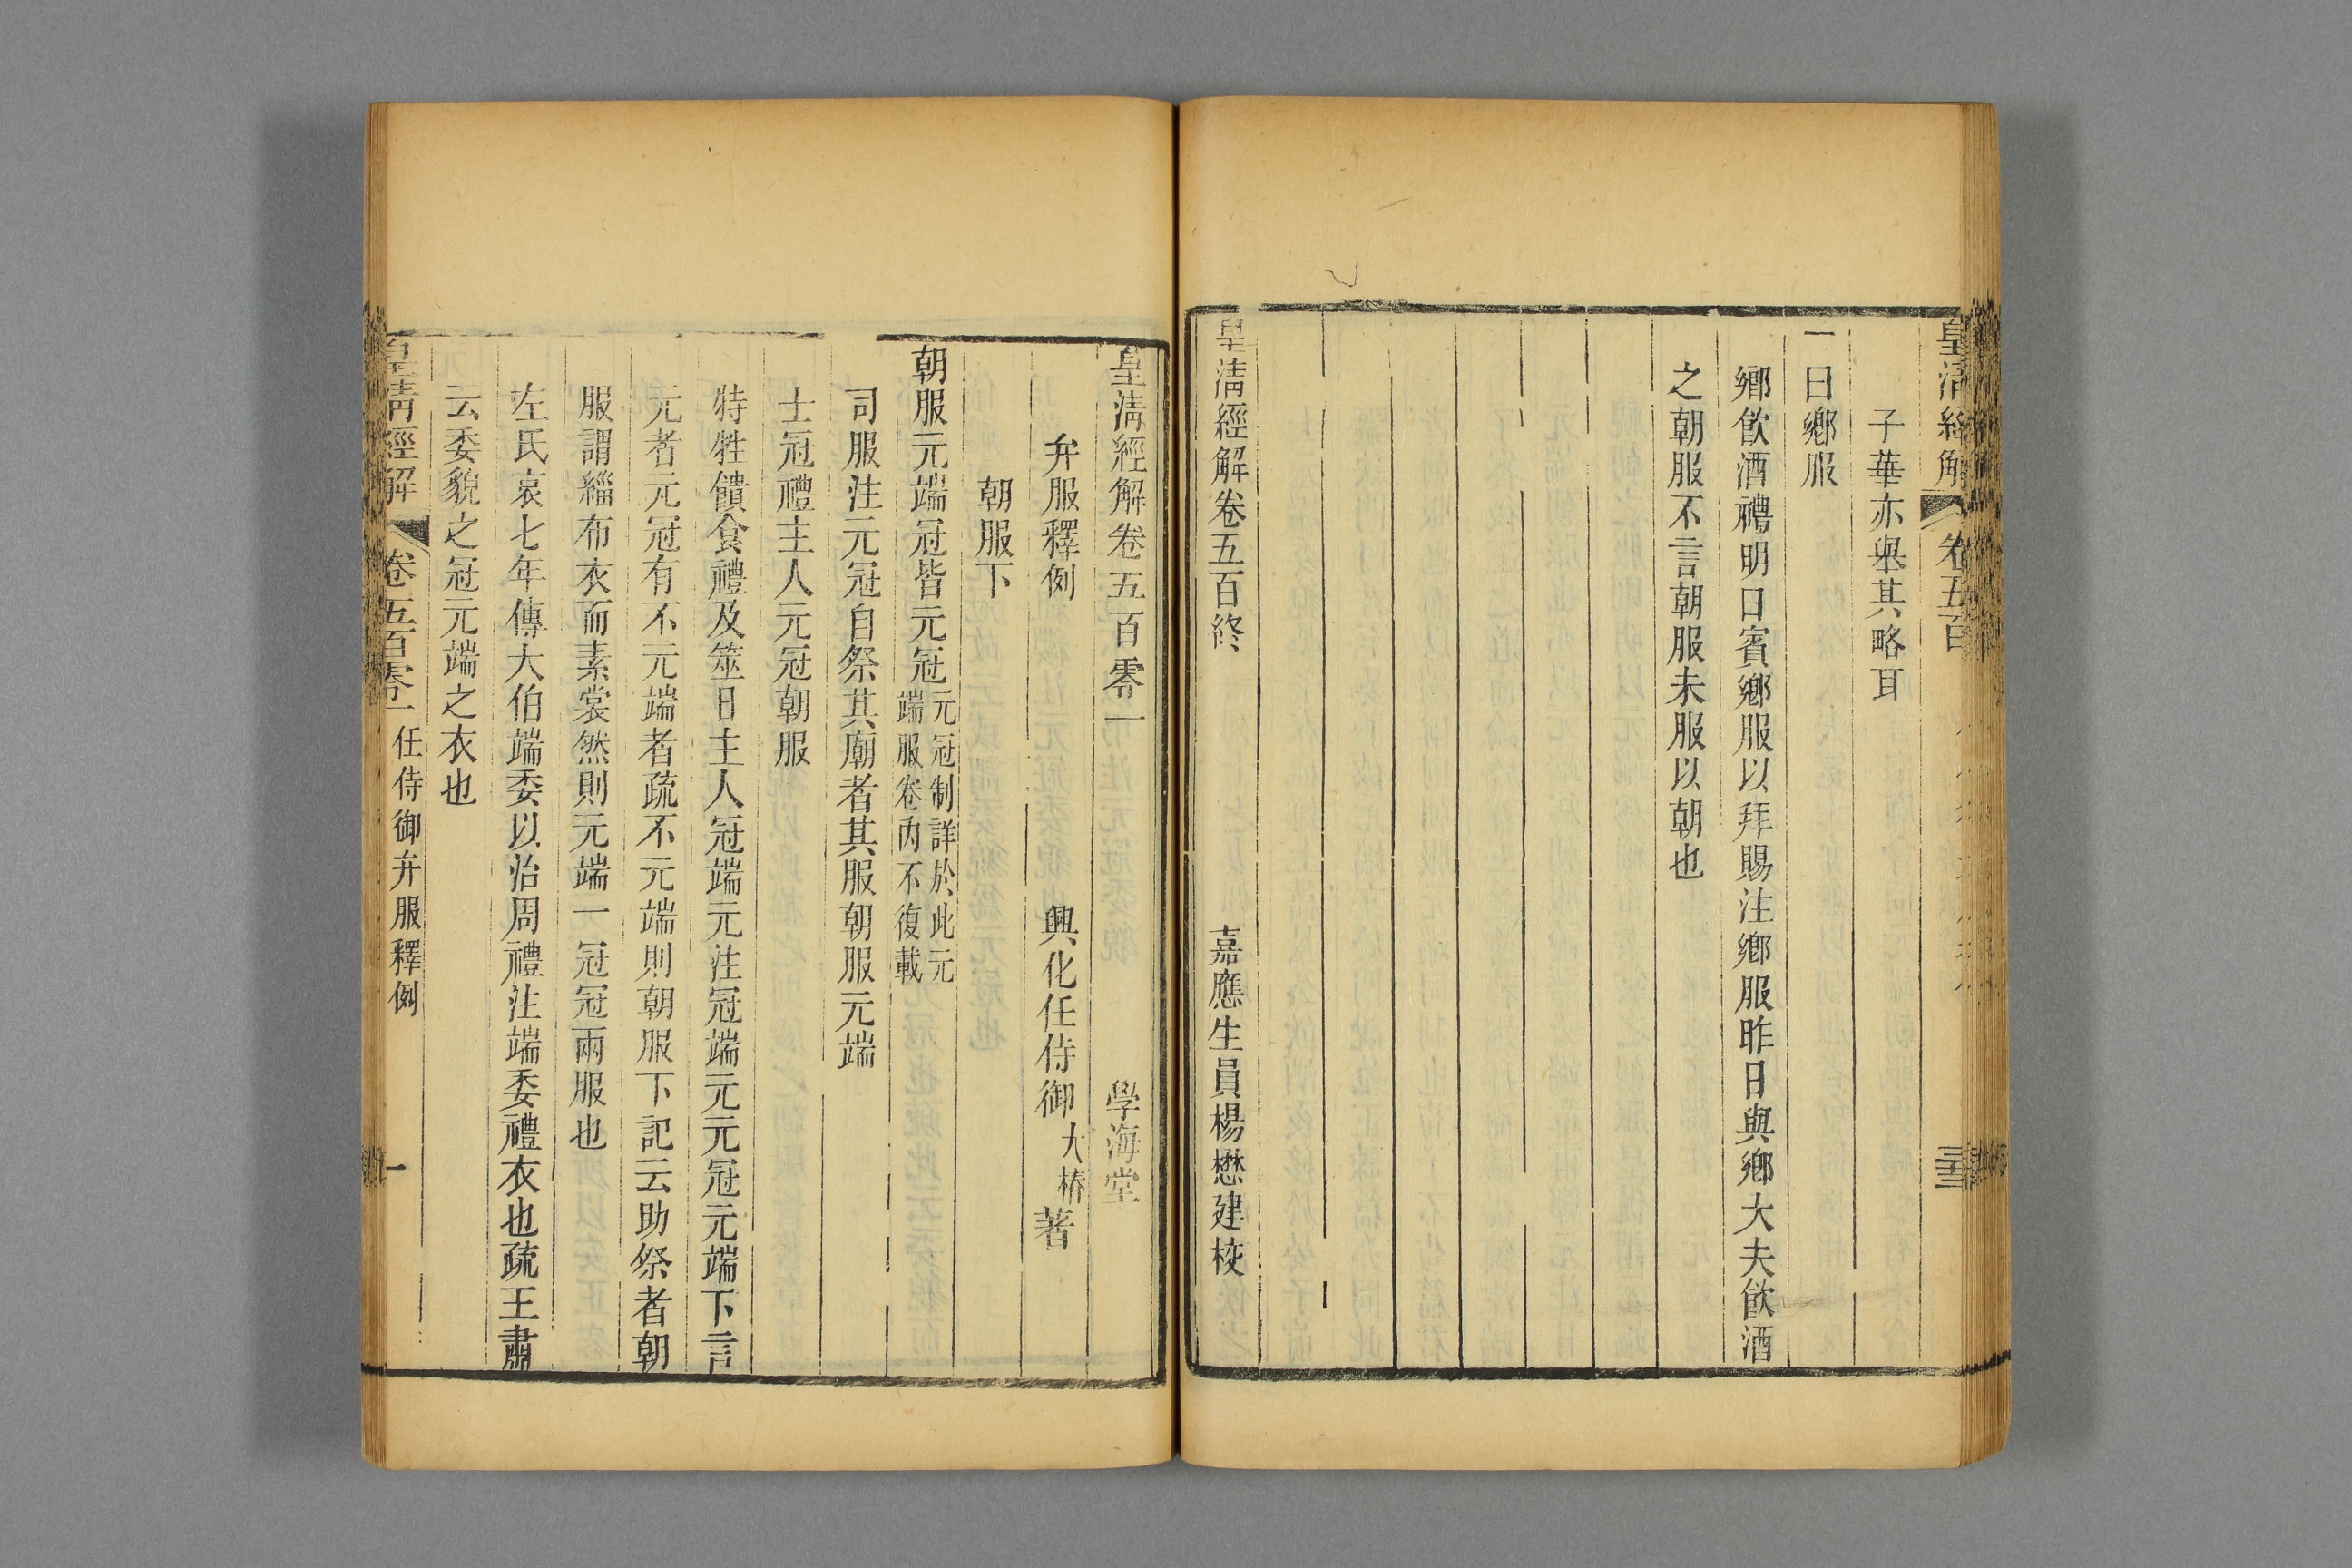 皇清經解
卷五百
子華亦舉其略耳
一曰鄉服
鄉飲酒禮明日賓鄉服以拜賜注鄉服昨日與鄉大夫飲酒
之朝服不言朝服未服以朝也
皇清經解卷五百終
嘉應生員楊懋建校
皇清經解卷五百零一
學海堂
弁服釋例
興化任侍御大椿著
朝服下
朝服元端冠皆元冠元冠制詳於此元端服卷內不復載
司服注元冠自祭其廟者其服朝服元端
士冠禮主人元冠朝服
特牲饋食禮及筮日主人冠端元注冠端元元冠元端下言
元者元冠有不元端者疏不元端則朝服下記云助祭者朝
服謂緇布衣而素裳然則元端一冠冠兩服也
左氏哀七年傳大伯端委以治周禮注端委禮衣也疏王肅
云委貌之冠元端之衣也
皇清經解
卷五百零一
任侍御弁服釋例
一